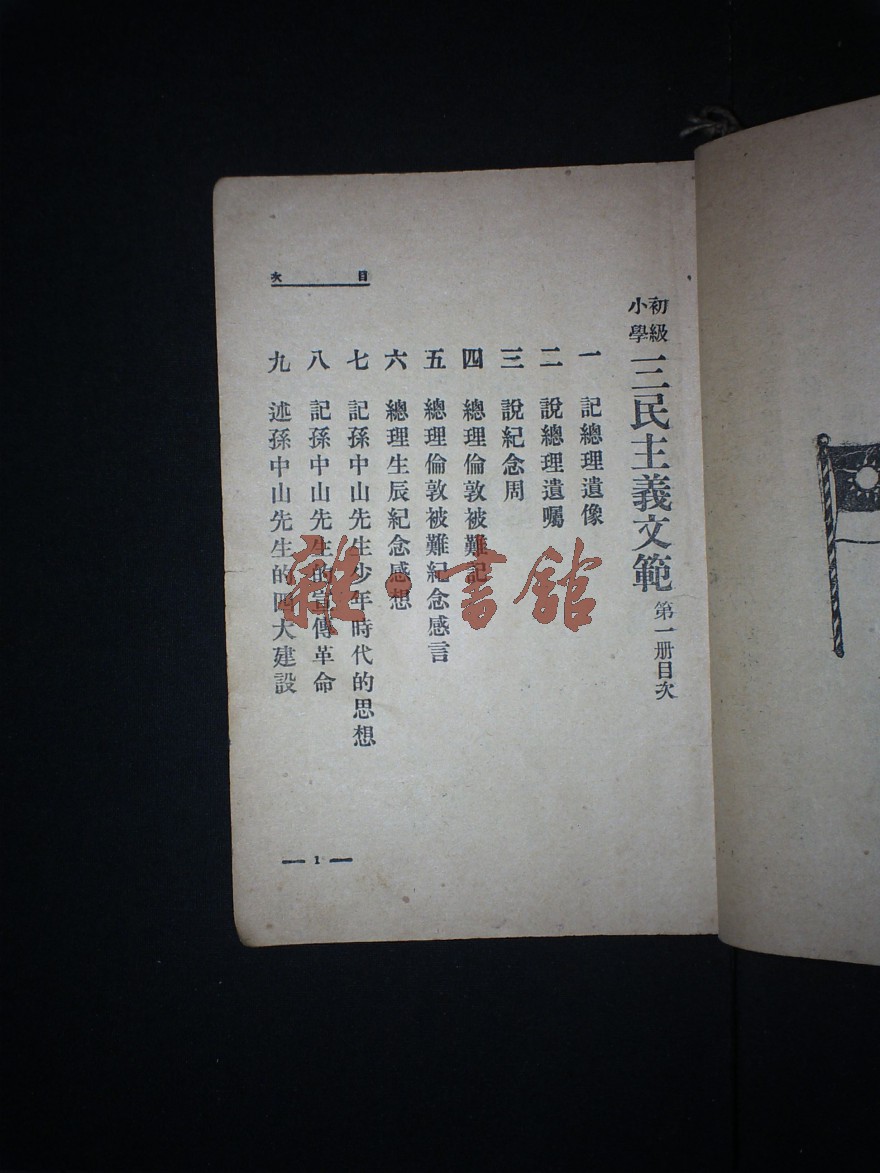 初級小學 三民主義文範 第一册目次
一 記總理遺像
二 說總理遺囑
三 說紀念周
四 總理倫敦被難記
五 總理倫敦被難紀念感言
六 總理生辰紀念感想
七 記孫中山先生少年時代的思想
八 記孫中山先生的宣傳革命
九 述孫中山先生的四大建設
目次
1
雜·書館